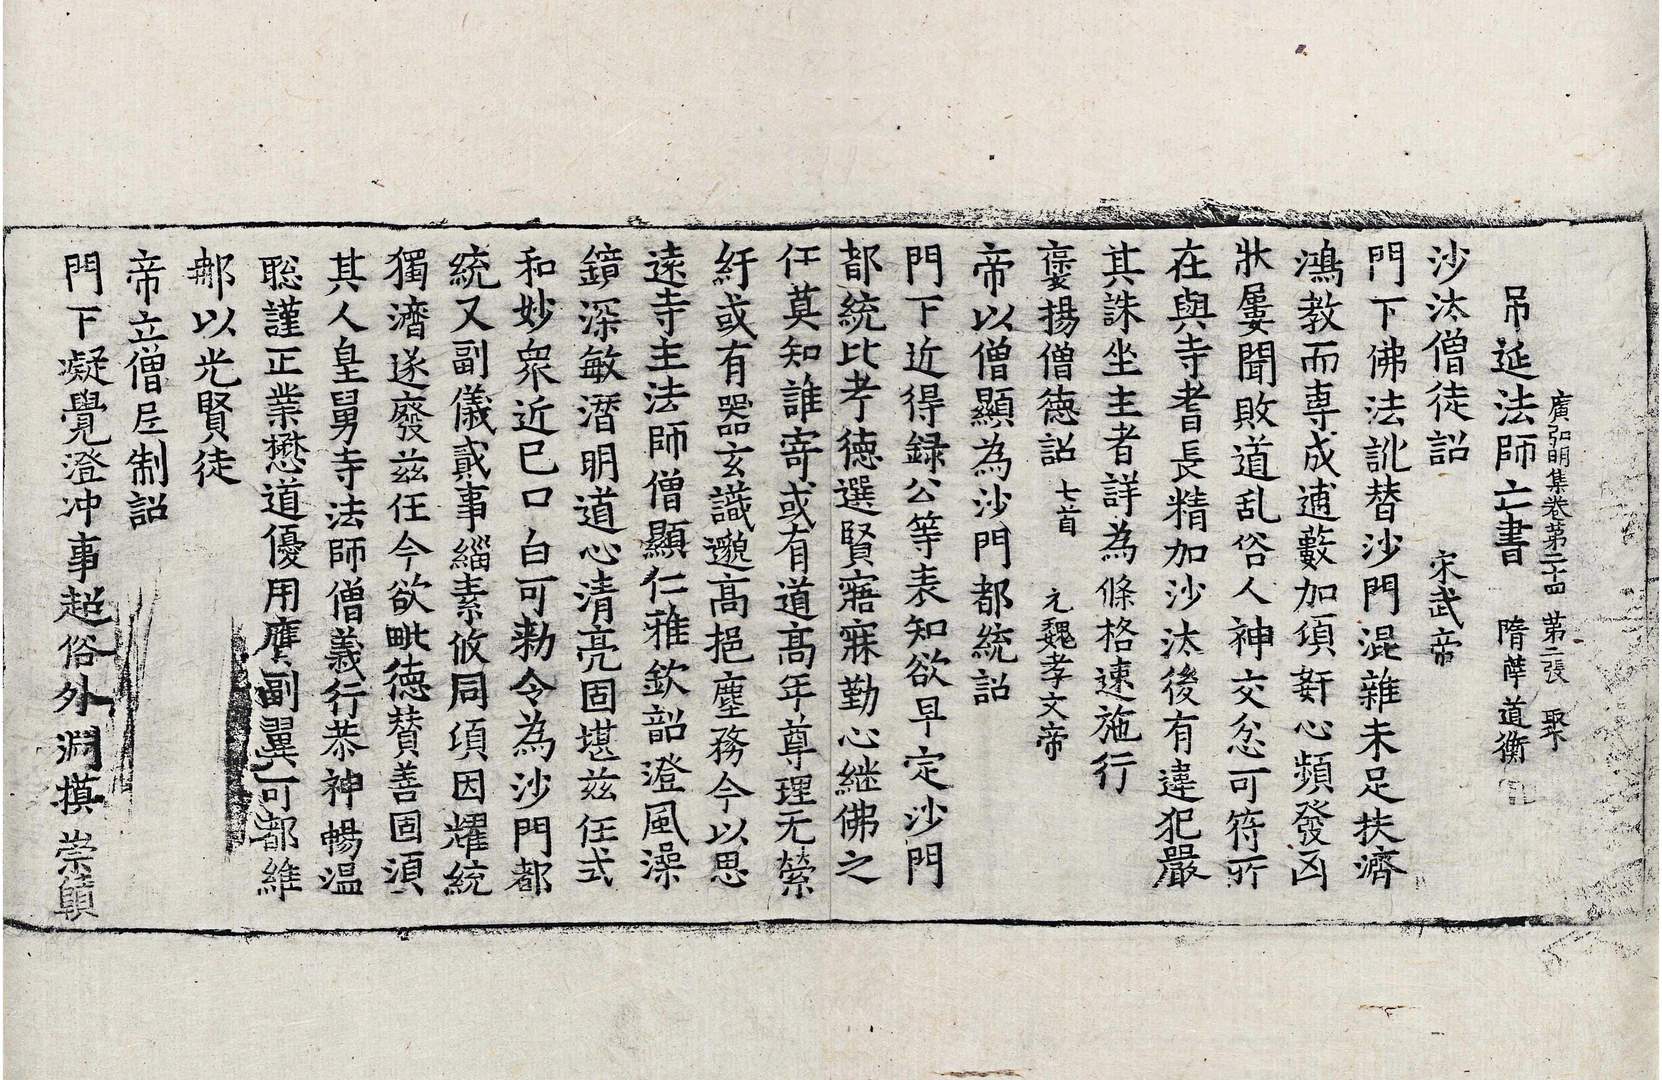 廣弘明集卷第二十四 第二張 聚
吊延法師亡書 隋薛道衡
沙汰僧徒詔 宋武帝
門下佛法訛替沙門混雜未足扶濟
鴻教而專成逋藪加須姧心頻發凶
狀屢聞敗道乱俗人神交忿可符所
在與寺耆長精加沙汰後有違犯嚴
其誅坐主者詳為條格速施行
襃揚僧德詔 七首 元魏孝文帝
帝以僧顯為沙門都統詔
門下近得録公等表知欲早定沙門
都統比考德選賢寤寐勤心継佛之
任莫知誰寄或有道高年尊理无縈
紆或有器玄識邈高挹塵務今以思
遠寺主法師僧顯仁雅欽韶澄風澡
鏡深敏潛明道心清亮固堪玆任式
和妙衆近已口白可勑令為沙門都
統又副儀貳事緇素攸同須因耀統
獨濟遂廢茲任今欲毗德賛善固須
其人皇舅寺法師僧義行恭神暢溫
聡謹正業懋道優用膺副翼可都維
那以光賢徒
帝立僧尼制詔
門下凝覺澄冲事超俗外淵摸崇賾